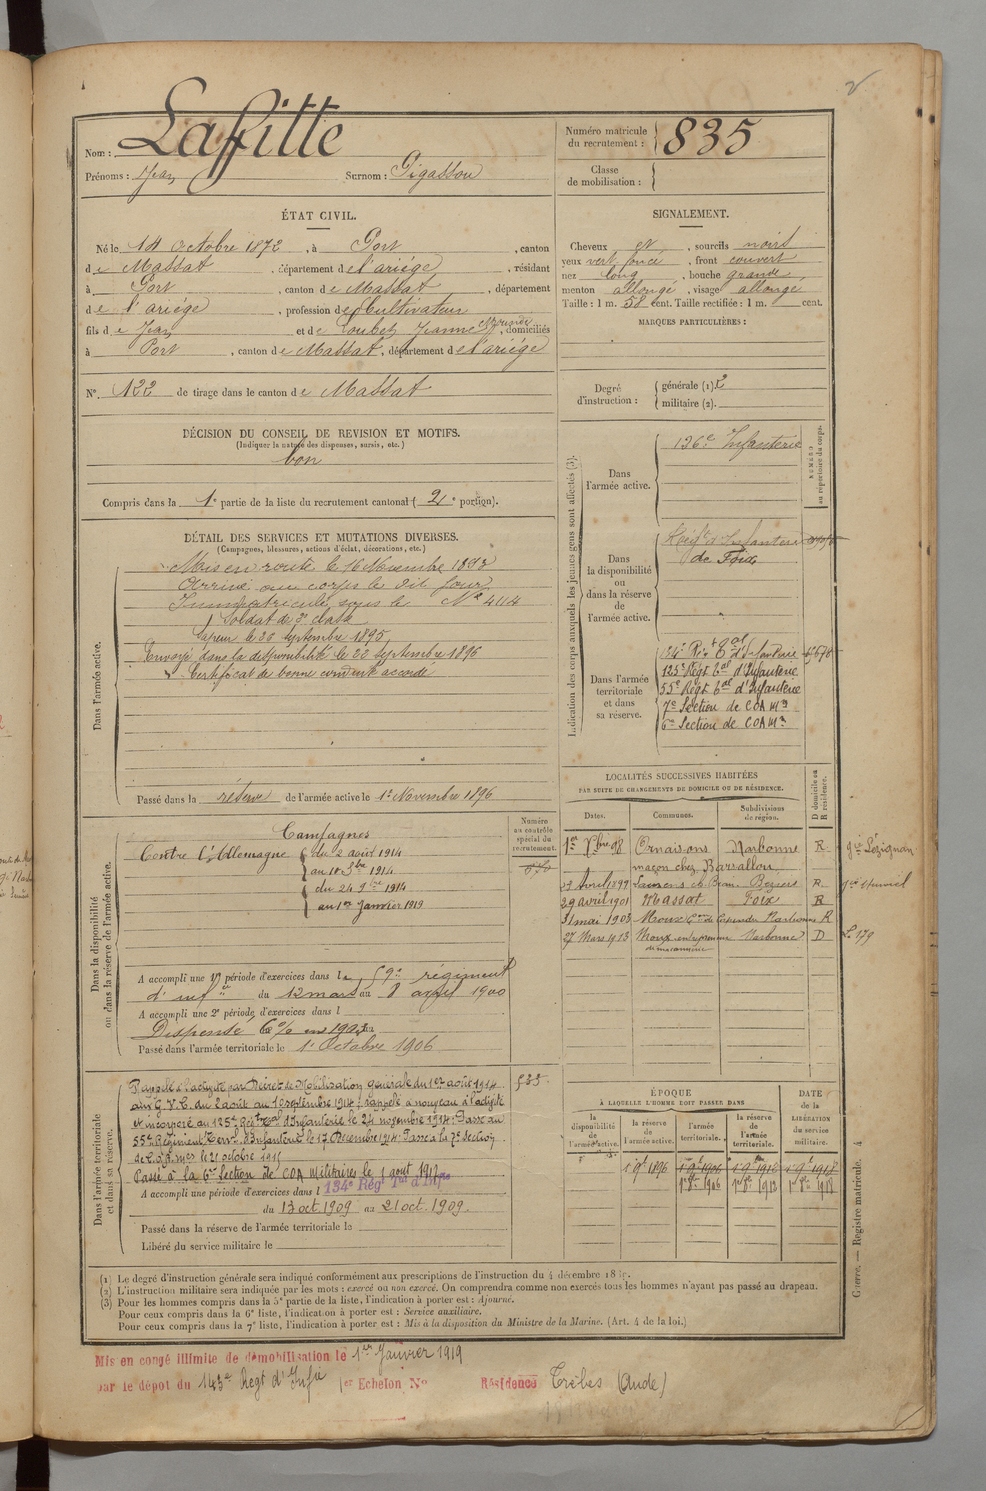 Lafitte
Nom :
Prénoms : Jean Surnom : Pigassou
Numéro matricule du recrutement : 835
Classe de mobilisation :
ÉTAT CIVIL.
Né le 14 Octobre 1872, à Port, canton
de Massat, département de l'ariége, résidant
à Port, canton de Massat, département
de l'ariége, profession de Cultivateur
fils de Jean et de Loubet Jeanne, domiciliés
à Port, canton de Massat, département de l'ariége
No. 122 de tirage dans le canton de Massat
DÉCISION DU CONSEIL DE REVISION ET MOTIFS.
(Indiquer la nature des dispenses, sursis, etc.)
bon
Compris dans la 1e partie de la liste du recrutement cantonal (2e portion).
SIGNALEMENT.
Cheveux et, sourcils noirs
yeux vert foncé, front couvert
nez long, bouche grande
menton allongé, visage allongé
Taille : 1 m. 58 cent. Taille rectifiée : 1 m. cent.
MARQUES PARTICULIÈRES :
Degré d'instruction : générale (1). 2
militaire (2).
DÉTAIL DES SERVICES ET MUTATIONS DIVERSES.
(Campagnes, blessures, actions d'éclat, décorations, etc.)
Dans l'armée active.
Mis en route le 16 Novembre 1893
Arrivé au corps le dit jour
Immatriculé sous le No
Soldat de 2e classe
Sapeur le 26 Septembre 1895
Envoyé dans la disponibilité le 22 Septembre 1896
Certificat de bonne conduite accordé
Passé dans la réserve de l'armée active le 1er Novembre 1896
Indication des corps auxquels les jeunes gens sont affectés (3).
NUMÉRO au répertoire du corps.
Dans l'armée active.
126e Infanterie
Dans la disponibilité ou dans la réserve de l'armée active.
Régt d'Infanterie
de Foix
Dans l'armée territoriale et dans sa réserve.
134e Rgt Tal d'Infanterie
125e Régt Tal d'Infanterie
55e Régt Tal d'Infanterie
7e Section de COA Mres
6e Section de COA Mres
Dans la disponibilité ou dans la réserve de l'armée active.
Numéro au contrôle spécial du recrutement.
Campagnes
Contre l'Allemagne du 2 août 1914
au 10 7bre 1914
du 24 9bre 1914
au 1er Janvier 1919
A accompli une 1re période d'exercices dans le 59e régiment
d'infie du 12 mars au 8 avril 1900
A accompli une 2e période d'exercices dans l
Dispensé
Passé dans l'armée territoriale le 1er Octobre 1906
LOCALITÉS SUCCESSIVES HABITÉES
PAR SUITE DE CHANGEMENTS DE DOMICILE OU DE RÉSIDENCE.
Dates. Communes. Subdivisions de région. D domicile ou R résidence.
1er Xbre 98 Ornaisons Narbonne R gie Lézignan
maçon chez Barrallon
Avril 1899 Beziers R
29 avril 1901 Massat Foix R
31 mai 1903 Moux Narbonne R
27 Mars 1913 Moux entrepreneur Narbonne D
de maçonnerie
Dans l'armée territoriale et dans sa réserve.
535
Rappelé à l'activité par Décret de Mobilisation générale du 1er août 1914
aux G.V.C. du 2 août au 10 septembre 1914; Rappelé à nouveau à l'activité
et incorporé au 125e Régt Tal d'Infanterie le 24 novembre 1914. Passé au
55e Régiment Terrl d'Infanterie le 17 Décembre 1914. Passé à la 7e Section
de C.O.A. Mres le 21 octobre 1915
Passé à la 6e Section de COA Militaires le 1 aout 1917
A accompli une période d'exercices dans l 134e Régt Tal d'Infie
du 13 oct. 1909 au 21 oct. 1909.
Passé dans la réserve de l'armée territoriale le
Libéré du service militaire le
ÉPOQUE
À LAQUELLE L'HOMME DOIT PASSER DANS
la disponibilité de l'armée active. la réserve de l'armée active. l'armée territoriale. la réserve de l'armée territoriale. DATE de la LIBÉRATION du service militaire.
1er 9bre 1896 1er 9bre 1906 1er 9bre 1912 1er 9bre 1918
1er 8bre 1906 1er 8bre 1912 1er 8bre 1918
Guerre. — Registre matricule. 4
(1) Le degré d'instruction générale sera indiqué conformément aux prescriptions de l'instruction du 4 décembre
(2) L'instruction militaire sera indiquée par les mots : exercé ou non exercé. On comprendra comme non exercés tous les hommes n'ayant pas passé au drapeau.
(3) Pour les hommes compris dans la 5e partie de la liste, l'indication à porter est : Ajourné.
Pour ceux compris dans la 6e liste, l'indication à porter est : Service auxiliaire.
Pour ceux compris dans la 7e liste, l'indication à porter est : Mis à la disposition du Ministre de la Marine. (Art. 4 de la loi.)
Mis en congé illimité de démobilisation le 1er Janvier 1919
par le dépôt du 143e Régt d'Infie 1er Echelon No Résidence Trèbes (Aude)